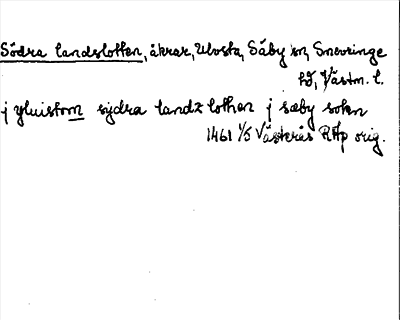 Södra landslotten, åkrar, Ulvsta, Säby sn, Snevringe
hd, Västm. l.
j yluistom sydra landz lothen j sæby sokn
1461 1/5 Västerås RAp orig.